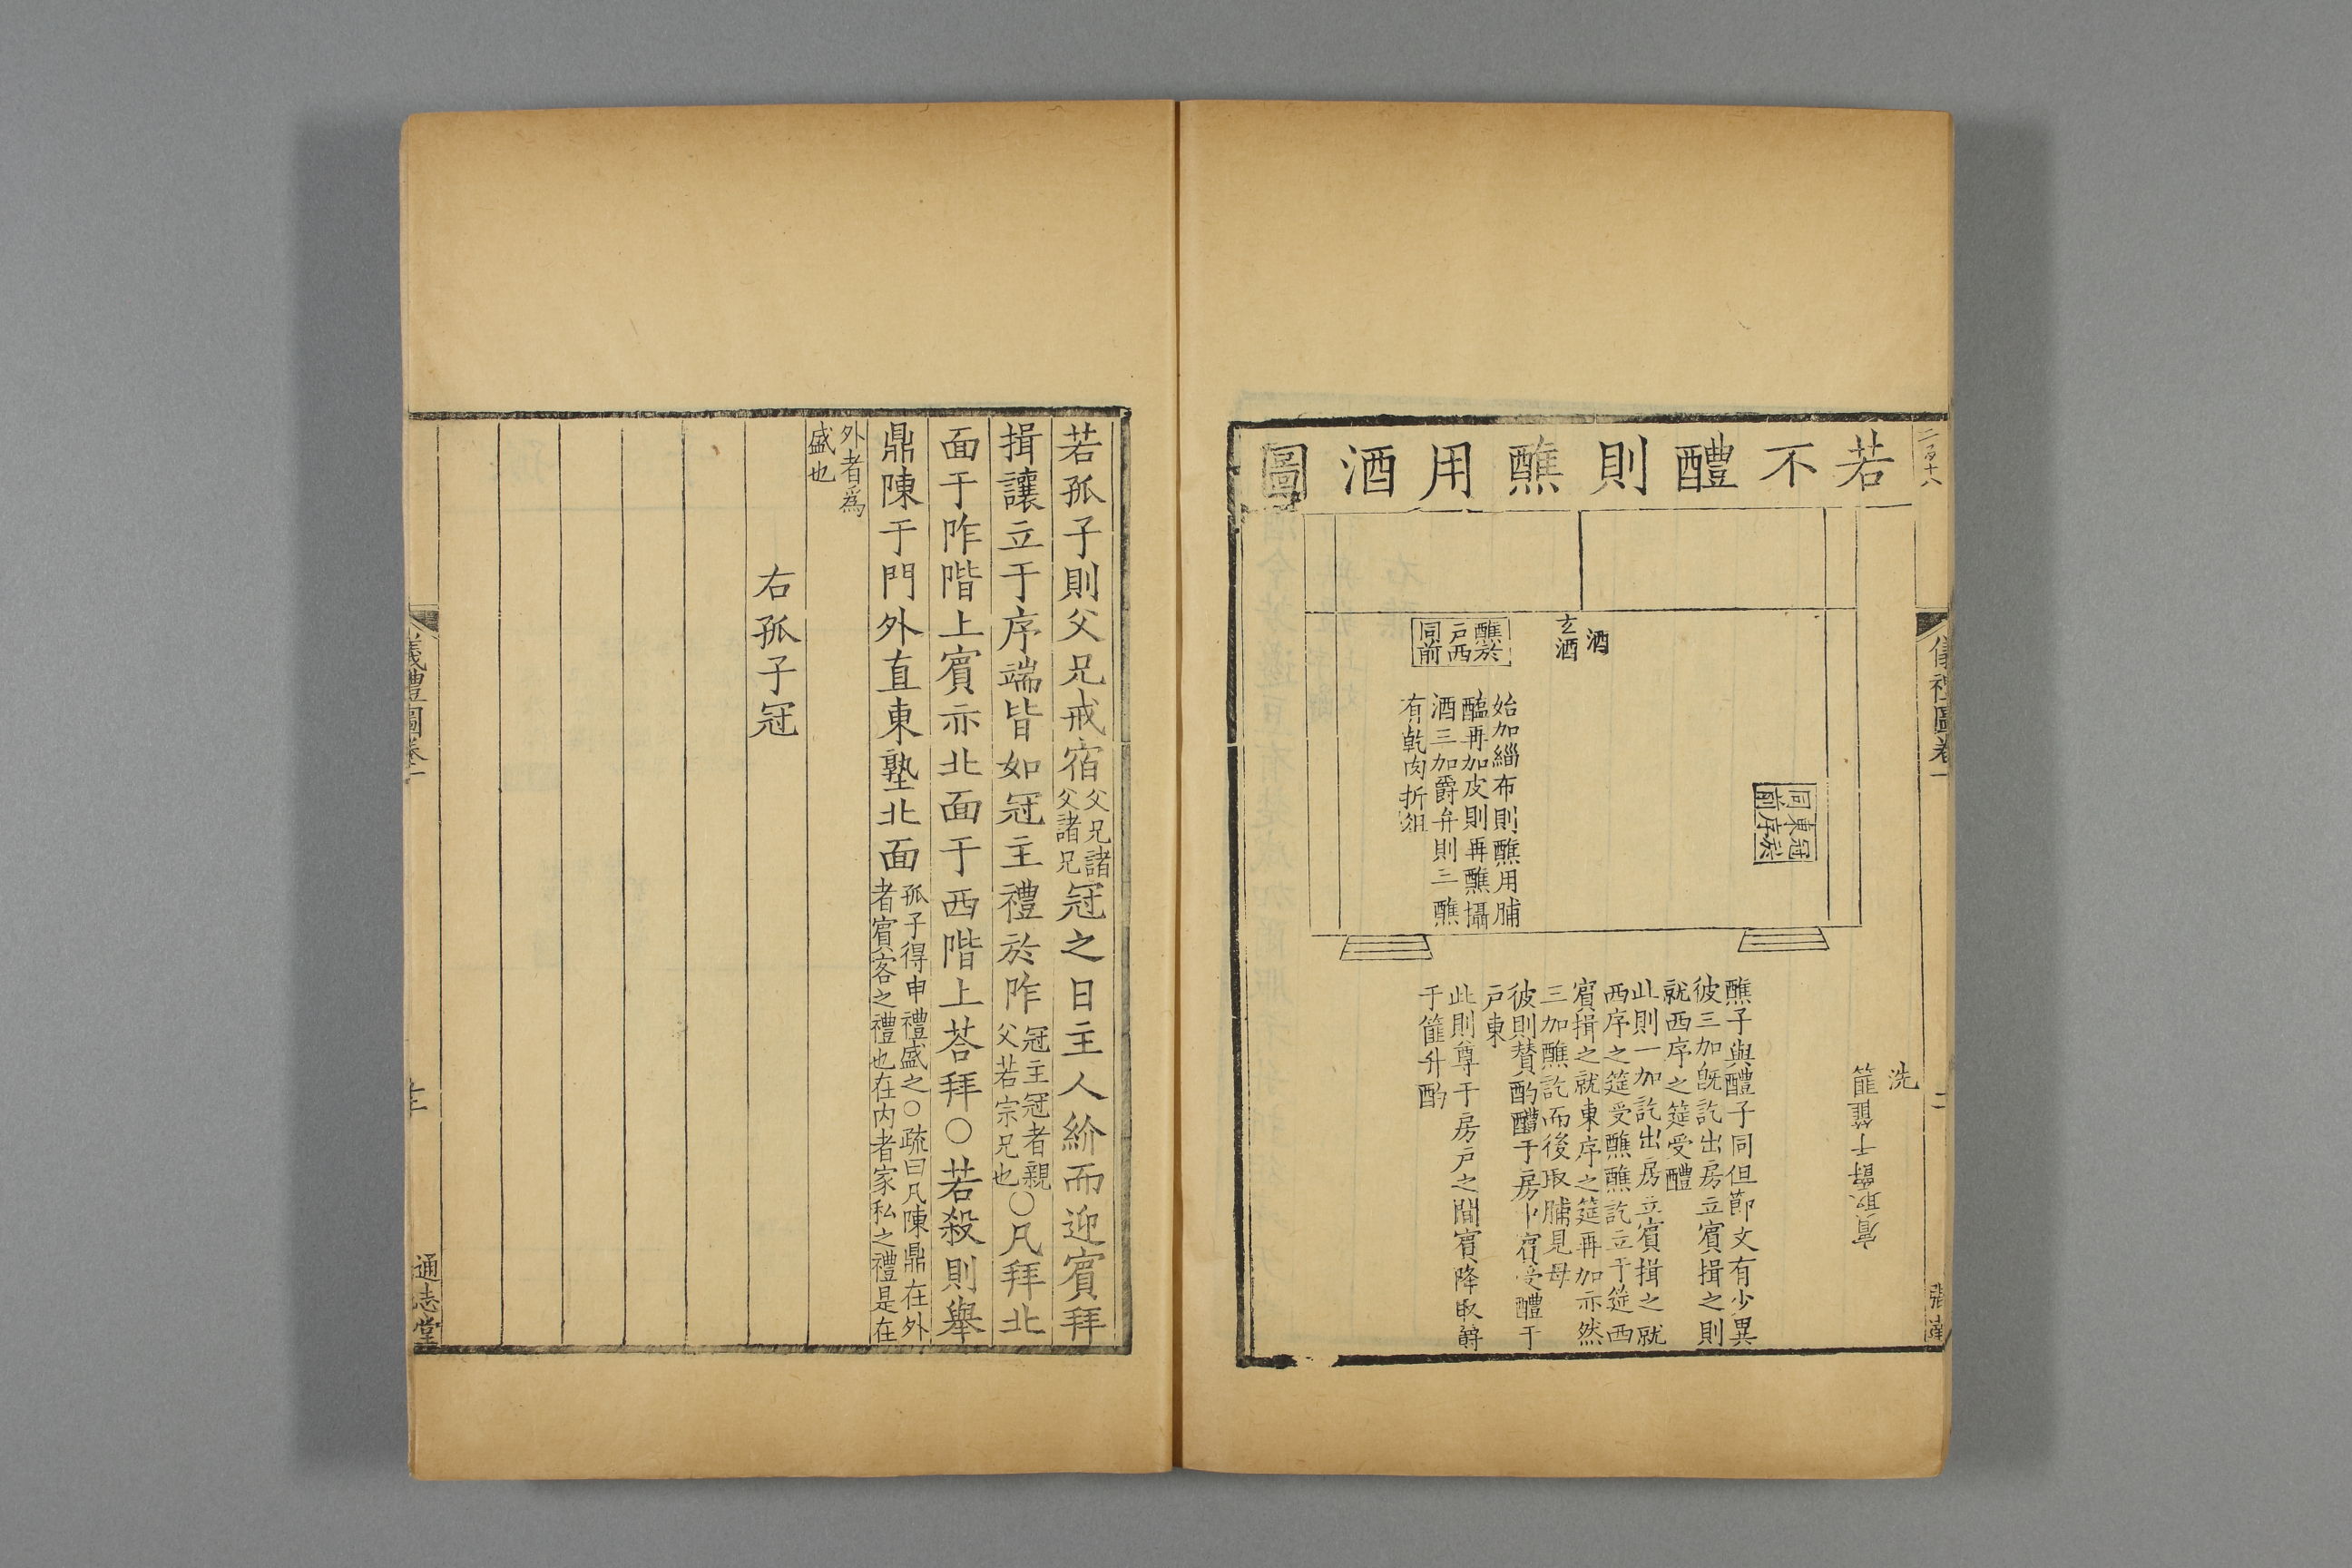 若不醴則醮用酒圖
二百十八
儀禮圖卷一
酒
玄酒
醮於
戶西
同前
始加緇布則醮用脯
醢再加皮則再醮攝
酒三加爵弁則三醮
有乾肉折俎
冠於
東序
同前
洗
篚
賓取爵于篚
醮子與醴子同但節文有少異
彼三加旣訖出房立賓揖之則
就西序之筵受醴
此則一加訖出房立賓揖之就
西序之筵受醮醮訖立于筵西
賓揖之就東序之筵再加亦然
三加醮訖而後取脯見母
彼則贊酌醴于房中賓受醴于
戶東
此則尊于房戶之間賓降取爵
于篚升酌
若孤子則父兄戒宿父兄諸
父諸兄冠之日主人紒而迎賓拜
揖讓立于序端皆如冠主禮於阼冠主冠者親
父若宗兄也○凡拜北
面于阼階上賓亦北面于西階上荅拜○若殺則舉
鼎陳于門外直東塾北面孤子得申禮盛之○疏曰凡陳鼎在外
者賓客之禮也在內者家私之禮是在
外者爲
盛也
右孤子冠
儀禮圖卷一
通志堂